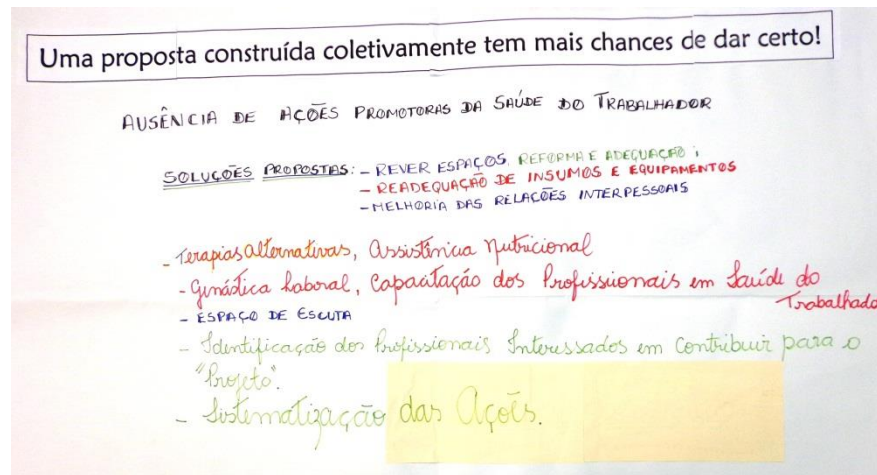 Uma proposta construída coletivamente tem mais chances de dar certo!
AUSÊNCIA DE AÇÕES PROMOTORAS DA SAÚDE DO TRABALHADOR
SOLUÇÕES PROPOSTAS: - REVER ESPAÇOS, REFORMA E ADEQUAÇÃO;
- READEQUAÇÃO DE INSUMOS E EQUIPAMENTOS
- MELHORIA DAS RELAÇÕES INTERPESSOAIS
- Terapias alternativas, Assistência Nutricional
- Ginástica Laboral, Capacitação dos Profissionais em Saúde do
Trabalhado
- ESPAÇO DE ESCUTA
- Identificação dos Profissionais Interessados em Contribuir para o
"Projeto".
- Sistematização das Ações.